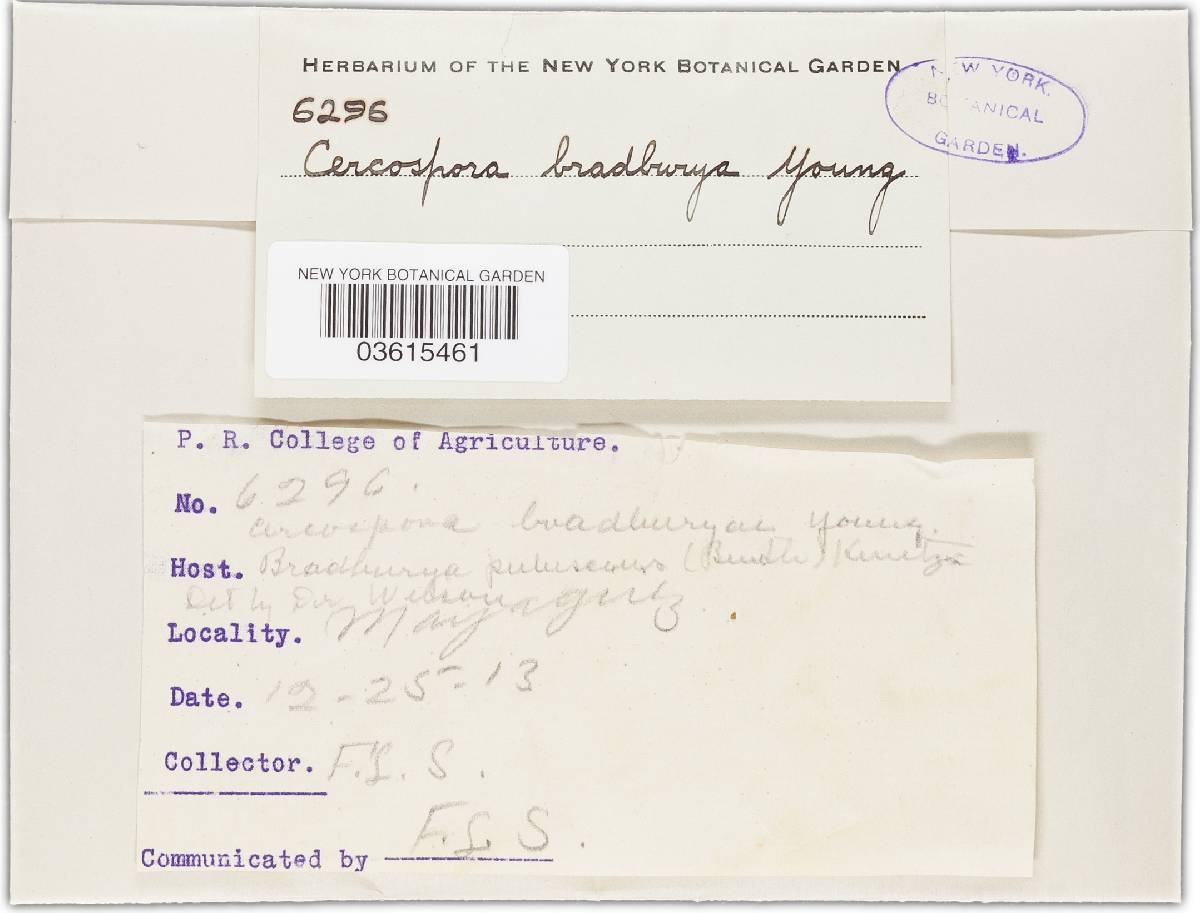 HERBARIUM OF THE NEW YORK BOTANICAL GARDEN
NEW YORK
BOTANICAL
GARDEN.
6296
Cercospora bradburya Young
NEW YORK BOTANICAL GARDEN
03615461
P. R. College of Agriculture.
No. 6296.
Cercospora bradburyae Young.
Host. Bradburya pubescens (Benth) Kuntze
Det by Dr Wilson
Locality. Mayaguez
Date. 12-25-13
Collector. F.L.S.
Communicated by F.L.S.